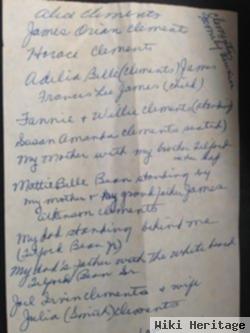 Alice Clements
James Orian Clements
Horace Clements
Adilia Belle (Clements) James
Francis Lee James (child)
Fannie & Wallie Clements (standing)
Susan Amanda Clements seated)
my mother with my brother Zilford
on her lap
Mattie Belle Bean standing by
my mother & my grandfather James
Dickinson Clements
My dad standing behind me
(Zilford Bean Jr)
My dad's father with the white beard
Zilford Bean Sr
Joel Irvin Clements & wife
Julia (Smith) Clements
Clements
Family
Wiki Heritage